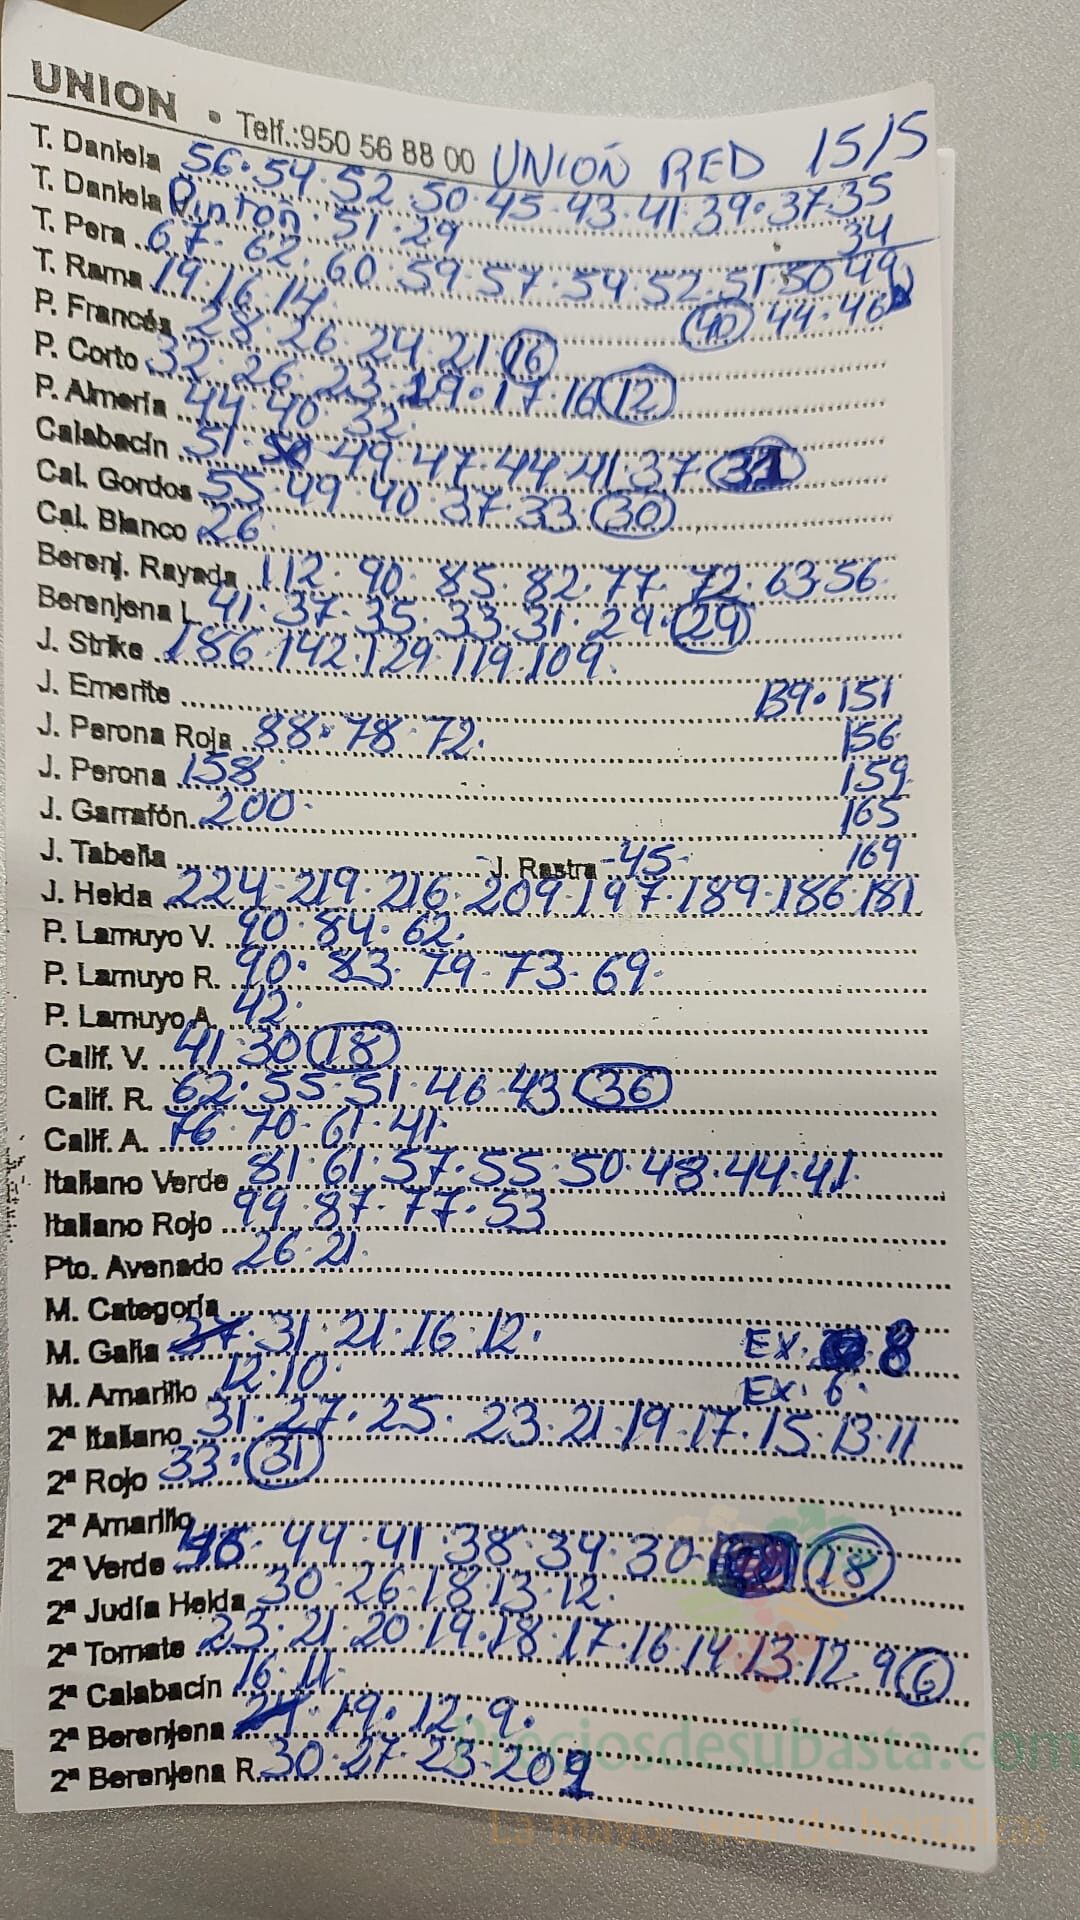 UNION • Telf.:950 56 88 00 UNION RED 15/5
T. Daniela 56·54·52·50·45·43·41·39·37·35
T. Daniela Pinton·51·29 34
T. Pera 67·62·60·59·57·54·52·51·50·49
T. Rama 19·16·14 40 44·46
P. Francés 28·26·24·21 16
P. Corto 32·26·23·19·17·16 12
P. Almería 44·40·32
Calabacín 51·50·49·47·44·41·37
Cal. Gordos 55·49·40·37·33·30
Cal. Blanco 26
Berenj. Rayada 112·90·85·82·77·72·63·56
Berenjena L. 41·37·35·33·31·29·29
J. Strike 186·142·129·119·109
J. Emerite 139·151
J. Perona Roja 88·78·72 156
J. Perona 158 159
J. Garrafón 200 165
J. Tabeña J. Rastra -45- 169
J. Helda 224·219·216·209·197·189·186·181
P. Lamuyo V. 90·84·62
P. Lamuyo R. 90·83·79·73·69
P. Lamuyo A. 42
Calif. V. 41·30 18
Calif. R. 62·55·51·46·43 36
Calif. A. 76·70·61·41
Italiano Verde 81·61·57·55·50·48·44·41
Italiano Rojo 99·87·77·53
Pto. Avenado 26·21
M. Categoría
M. Galia 37·31·21·16·12 EX. 8
M. Amarillo 12·10 EX. 6
2ª Italiano 31·27·25·23·21·19·17·15·13·11
2ª Rojo 33·31
2ª Amarillo
2ª Verde 46·44·41·38·34·30 18
2ª Judía Helda 30·26·18·13·12
2ª Tomate 23·21·20·19·18·17·16·14·13·12·9 6
2ª Calabacín 16·11
2ª Berenjena 19·12·9
2ª Berenjena R. 30·27·23·20
Preciosdesubasta.com
La mayor web de hortalizas